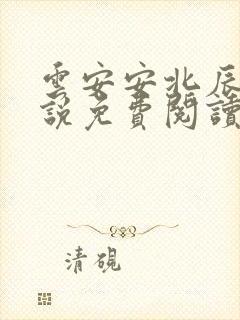 雲安安北辰
說免費閱讀
清硯